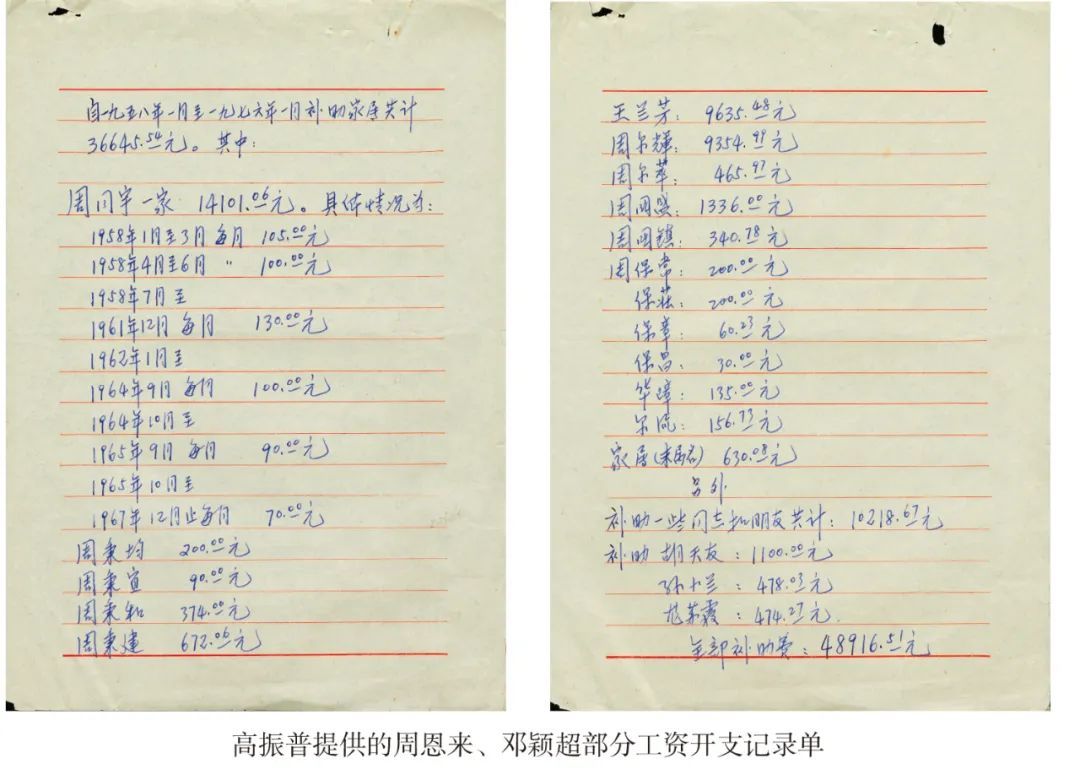 自一九五八年一月至一九七六年一月补助家居共计
36645.54元。其中:
周同宇一家 14101.06元。具体情况为:
1958年1月至3月 每月 105.00元
1958年4月至6月 〃 100.00元
1958年7月至
1961年12月 每月 130.00元
1962年1月至
1964年9月 每月 100.00元
1964年10月至
1965年9月 每月 90.00元
1965年10月至
1967年12月止每月 70.00元
周秉均 200.00元
周秉宜 90.00元
周秉和 374.00元
周秉建 672.06元
王兰芳: 9635.48元
周尔辉: 9354.99元
周尔萃: 465.97元
周国 1336.00元
周国镇: 340.78元
周保常: 200.00元
保莊: 200.00元
保章: 60.23元
保昌: 30.00元
华璋: 135.00元
尔 : 156.73元
家居 630.08元
另外
补助一些同志和朋友共计: 10218.67元
补助 胡天友: 1100.00元
孙小兰: 478.03元
霞: 474.27元
全部补助费: 48916.51元
高振普提供的周恩来、邓颖超部分工资开支记录单